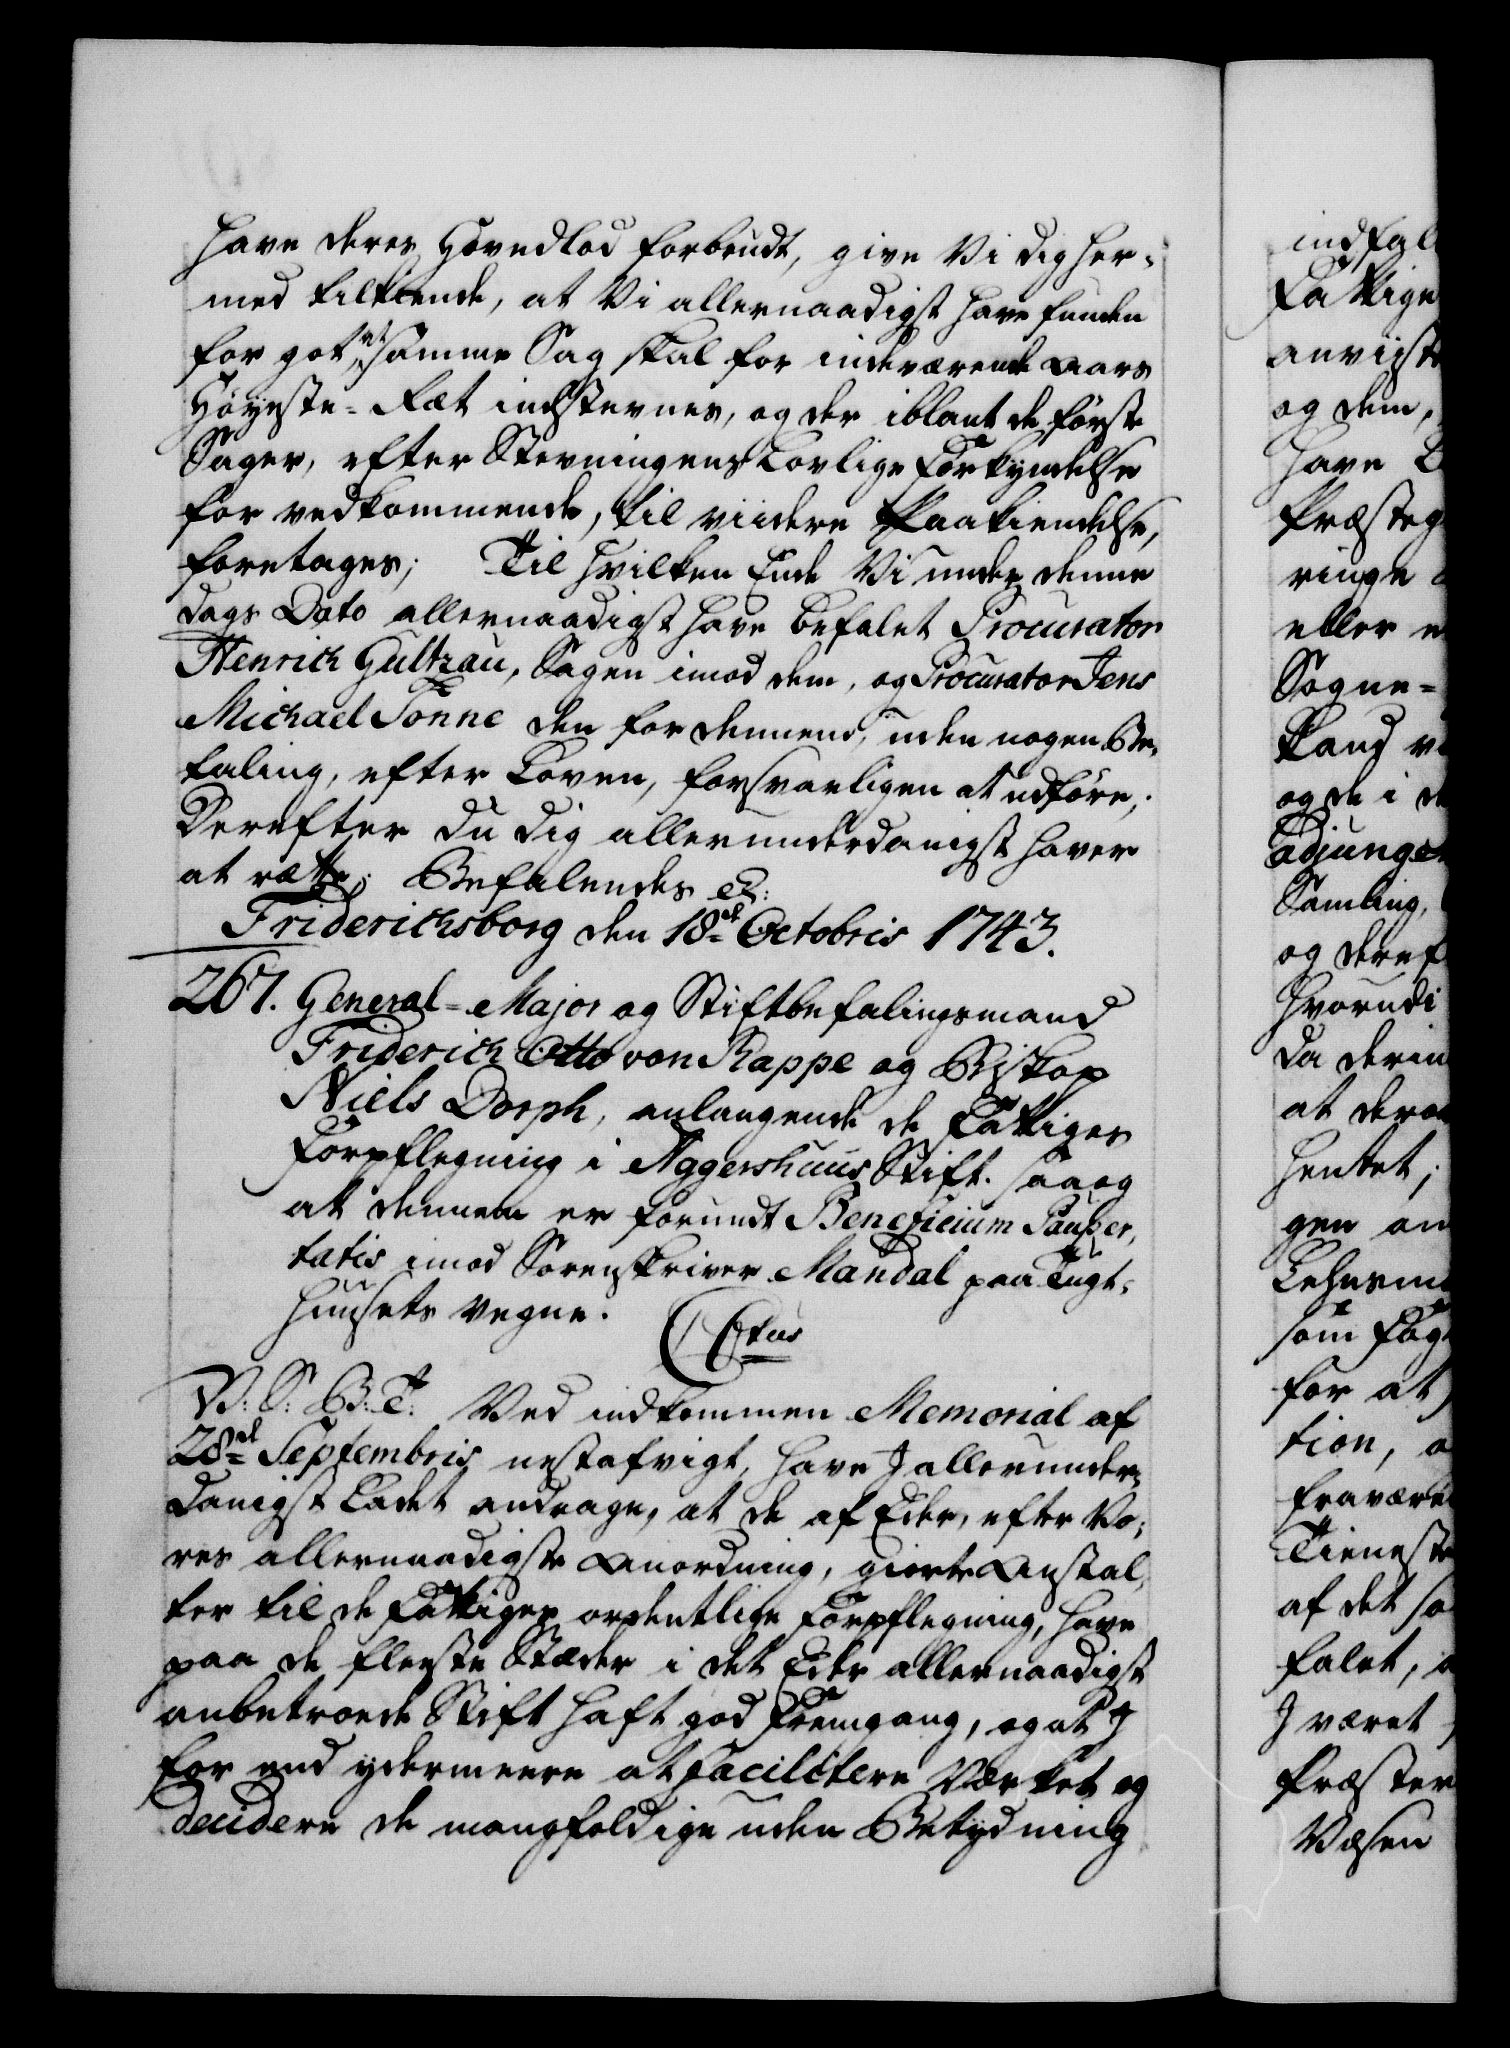 have deres Hovedlod forbrudt, give Vi dig her-
med tilkiende, at Vi allernaadigst have funden
for got, at samme Sag skal for indeværende Aars
Høyeste-Ræt indstevnes, og der iblant de første
Sager, efter Stevningens Lovlige Forkyndelse
for vedkommende, til viidere Paakiendelse,
foretages; Til hvilken Ende Vi under denne
Dags Dato allernaadigst have befalet Procurator
Henrich Gultzau, Sagen imod dem, og Procurator Jens
Michael Tonne den for dennem, uden nogen Be-
taling, efter Loven, forsvarligen at udføre;
Derefter du dig allerunderdanigst haver
at rætte; Befalendes etc:
Friderichsborg den 18de Octobris 1743.
267. General-Major og Stiftbefalingsmand
Friderich Otto von Rappe og Biskop
Niels Dorph, anlangende de Fattiges
Forpflegning i Aggershuus Stift. saa og
at dennem er forundt Beneficium Pauper,
tatis imod Sorenskriver Mandal paa Tugt-
huusets vegne.
V: S: G: T: Ved indkommen Memorial af
28de Septembris nestafvigt, have I allerunder-
danigst Ladet andrage, at de af Eder, efter Vo-
res allernaadigste Anordning, giorte Anstal,
ter til de Fattiges ordentlige Forpflegning, have
paa de fleeste Stæder i det Eder allernaadigst
anbetroede Stift haft god Fremgang, og at I
for end ydermeere at facilitere Værket og
decidere de mangfoldige uden Betydning
indfal
Fattige
anviiste
og dem,
have
Præsteg
ringe
eller
Sogne-
Stand
og de i
adjunge
Samling,
og deref
hvorudi
da derin
at dera
hentet;
gen an
Lehnsm
som Fog
for at
tion,
fravære
Tieneste
af det so
falet,
I været
Præster
Væsen